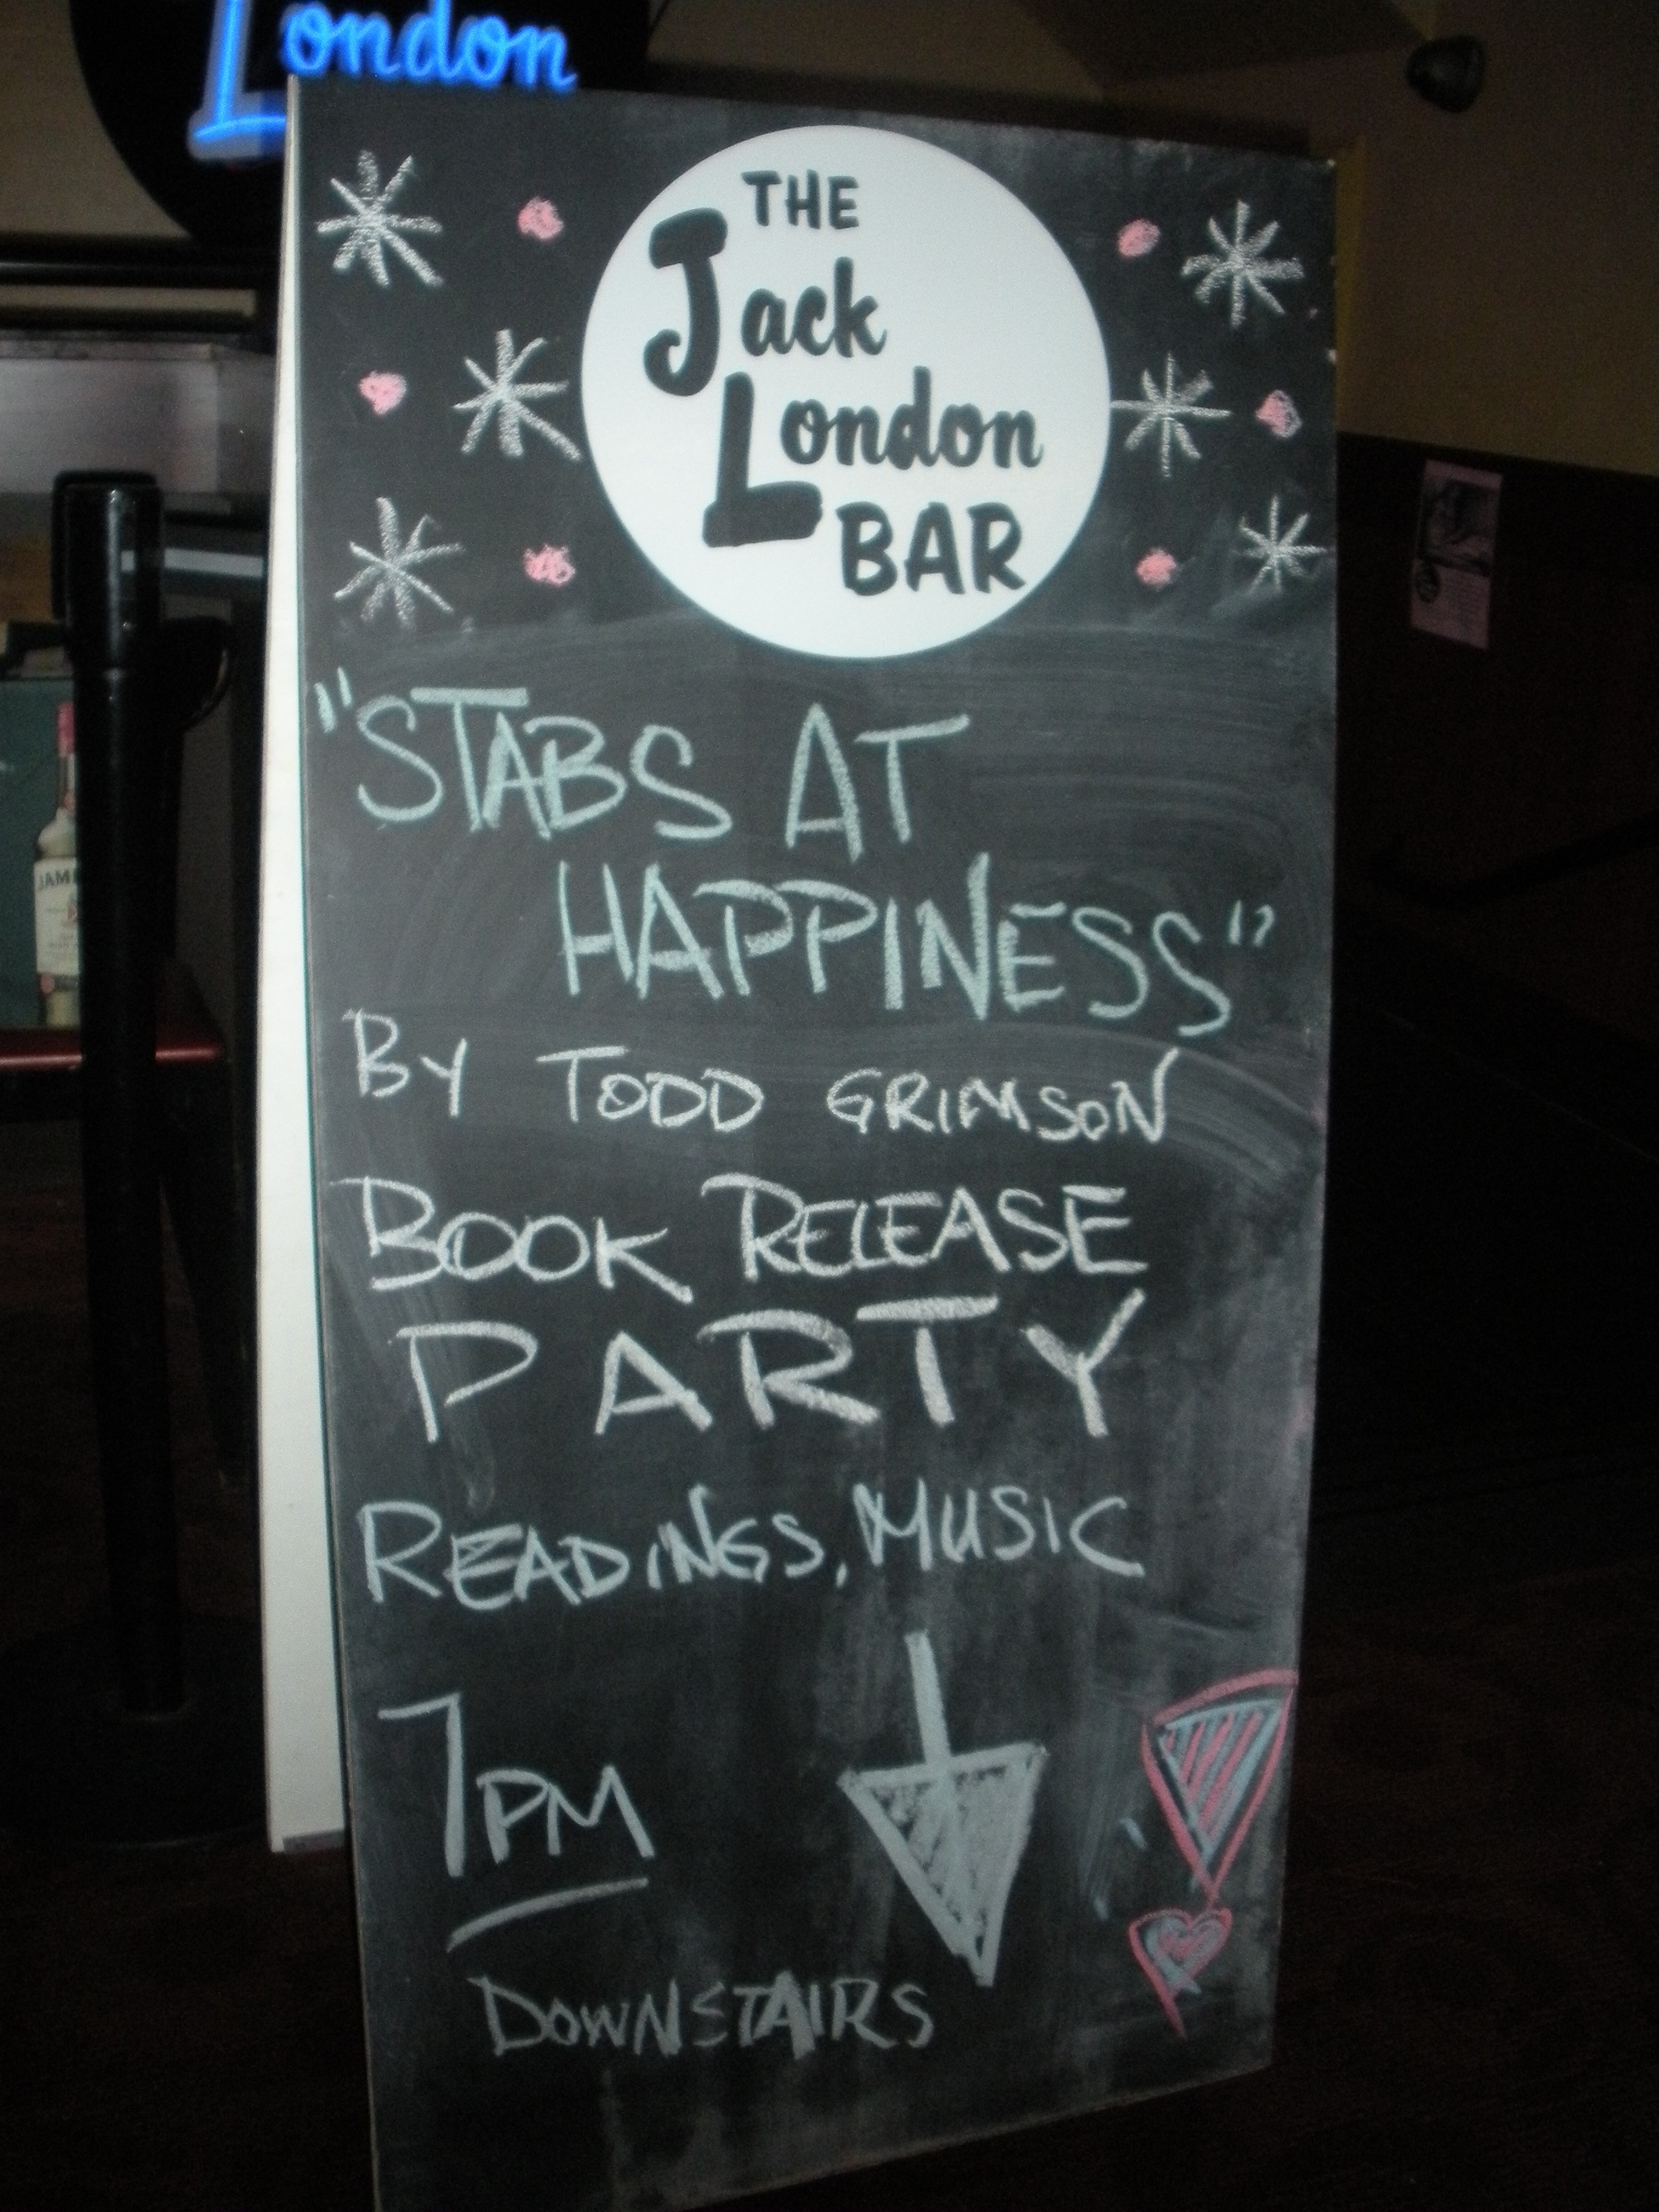 London
THE
Jack
London
BAR
"STABS AT
HAPPINESS"
BY TODD GRIMSON
BOOK RELEASE
PARTY
READINGS, MUSIC
7PM
DOWNSTAIRS
JAM